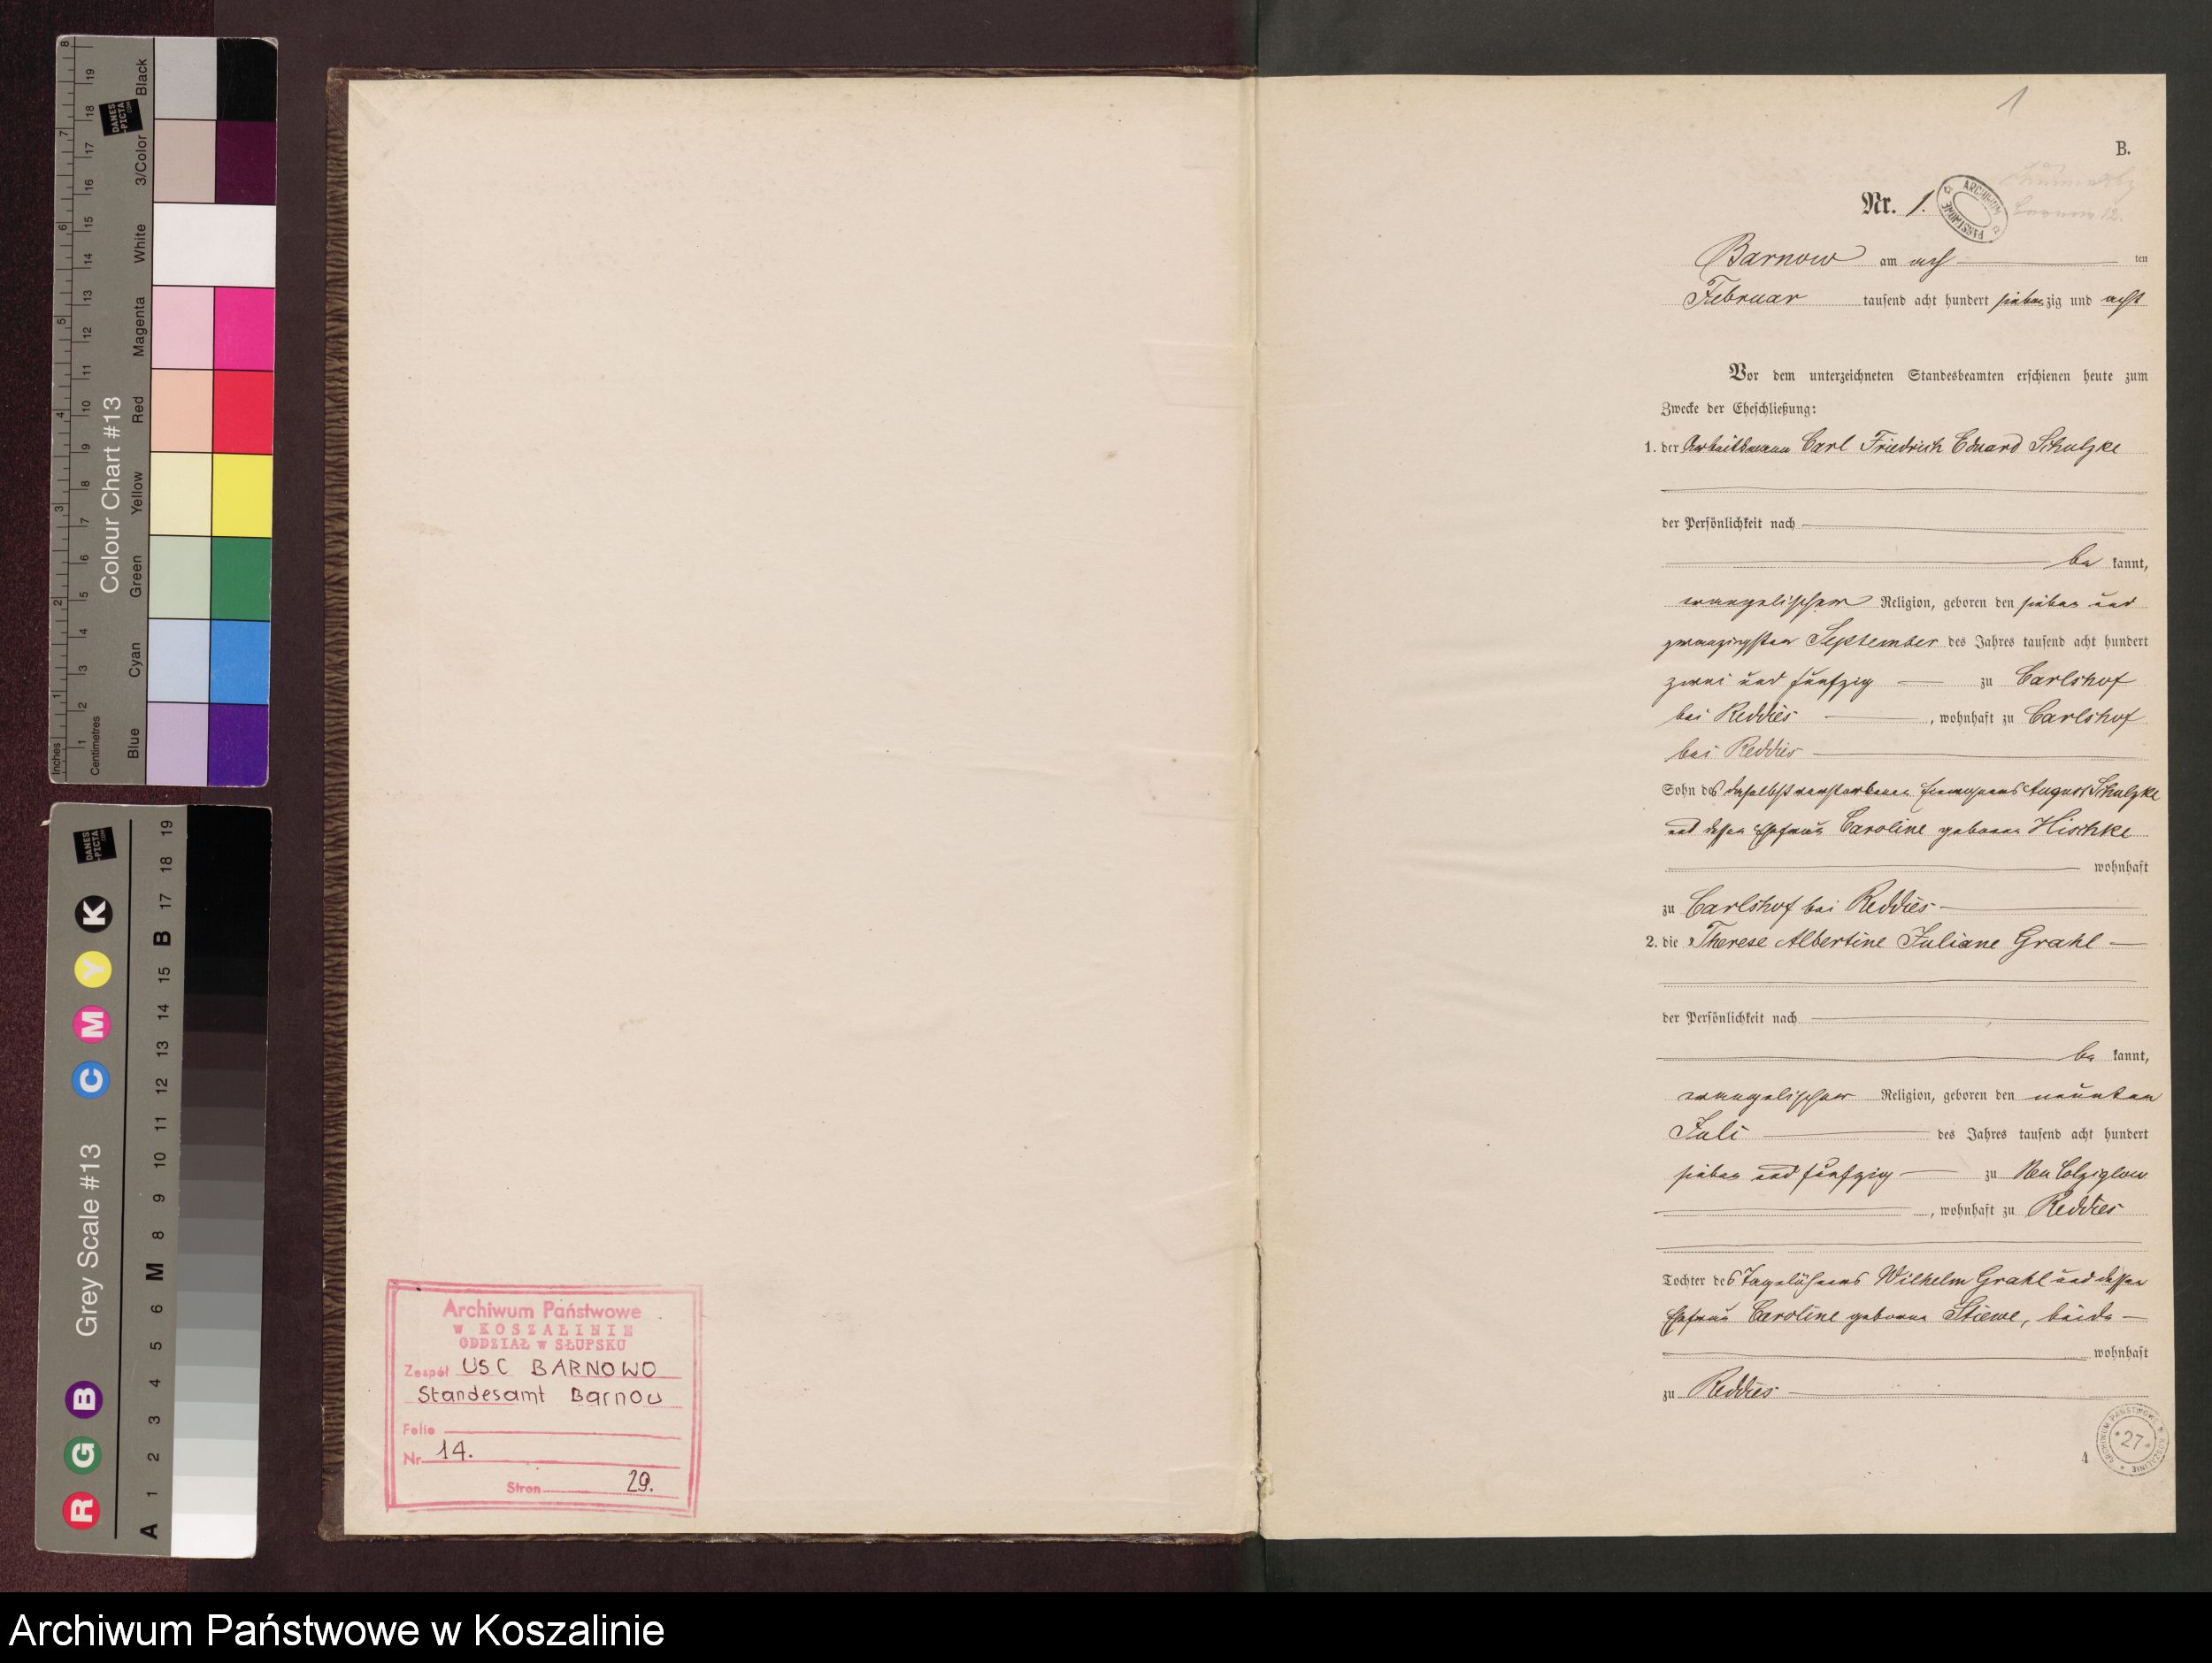 Archiwum Państwowe
w KOSZALINIE
ODDZIAŁ w SŁUPSKU
Zespół USC BARNOWO
Standesamt Barnow
Folio
Nr 14.
Stron 29.
1
B.
Nr. 1.
ARCHIWUM PAŃSTWOWE
Barnow am acht ten
Februar tausend acht hundert siebenzig und acht
Vor dem unterzeichneten Standesbeamten erschienen heute zum
Zwecke der Eheschließung:
1. der Arbeitsmann Carl Friedrich Eduard Schulzke
der Persönlichkeit nach
be kannt,
evangelischer Religion, geboren den sieben und
zwanzigsten September des Jahres tausend acht hundert
zwei und fünfzig zu Carlshof
bei Reddies , wohnhaft zu Carlshof
bei Reddies
Sohn des daselbst verstorbenen August Schulzke
und dessen Ehefrau Caroline geborene Hischke
wohnhaft
zu Carlshof bei Reddies
2. die Therese Albertine Juliane Grahl
der Persönlichkeit nach
be kannt,
evangelischer Religion, geboren den neunten
Juli des Jahres tausend acht hundert
sieben und fünfzig zu Neu Colziglow
, wohnhaft zu Reddies
Tochter des Tagelöhners Wilhelm Grahl und dessen
Ehefrau Caroline geborene Stiewe, beide
wohnhaft
zu Reddies
ARCHIWUM PAŃSTWOWE W KOSZALINIE * 27 *
4
Colour Chart #13
Black
3/Color
White
Magenta
Red
Yellow
Green
Cyan
Blue
Inches 1 2 3 4 5 6 7 8
Centimetres 1 2 3 4 5 6 7 8 9 10 11 12 13 14 15 16 17 18 19
DANES
-PICTA
.COM
Grey Scale #13
R G B C M Y K
A 1 2 3 4 5 6 M 8 9 10 11 12 13 14 15 B 17 18 19
DANES
-PICTA
.COM
Archiwum Państwowe w Koszalinie